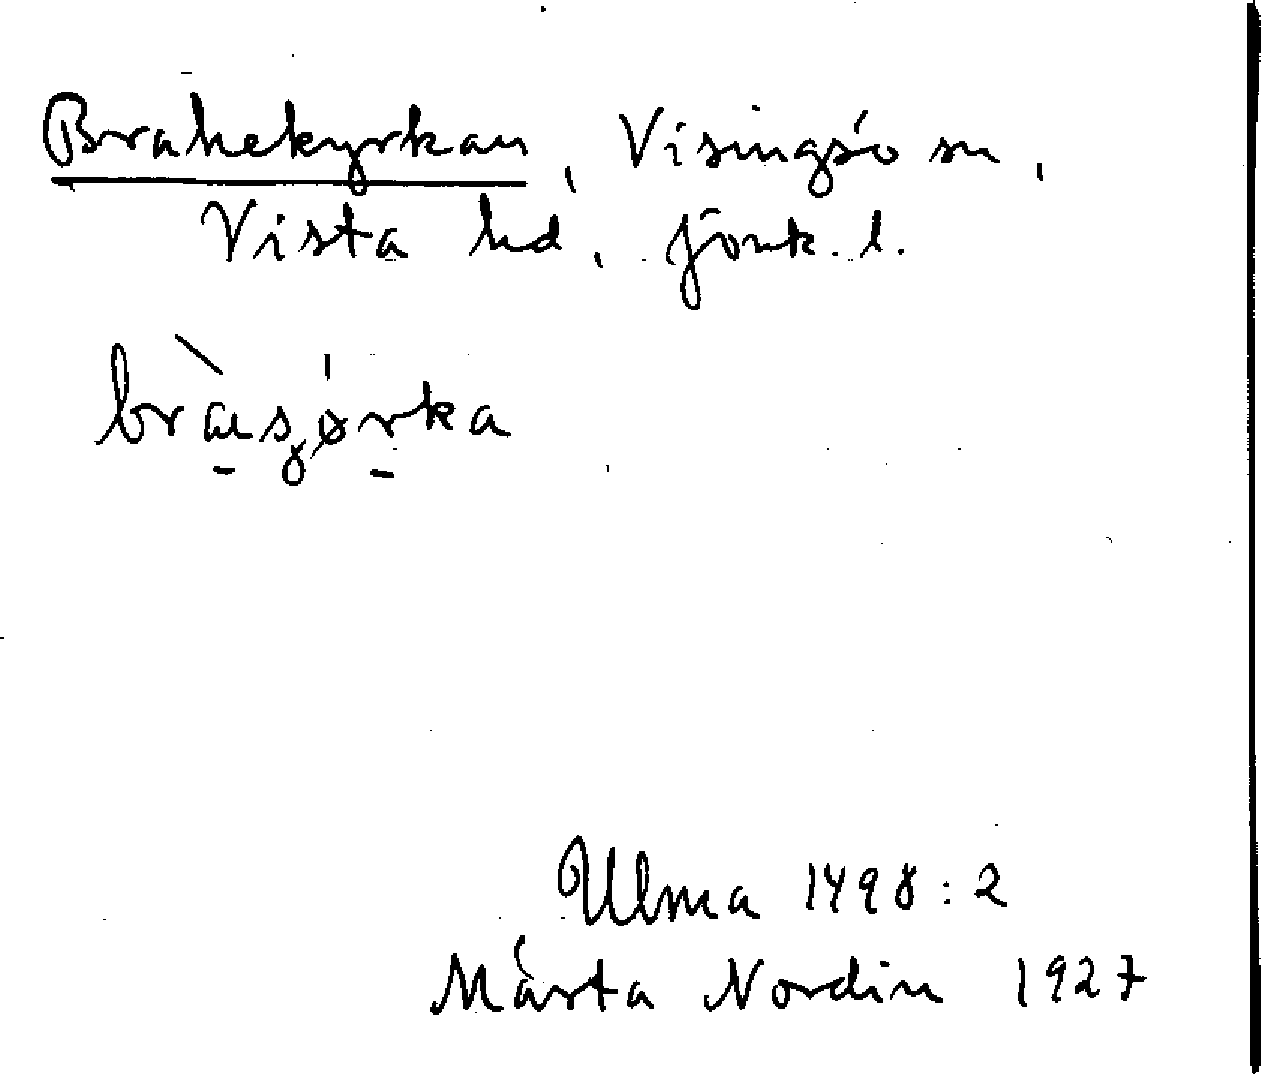 Brahekyrkan, Visingsö sn,
Vista hd, Jönk. l.
Ulma 1498:2
Märta Nordin 1927